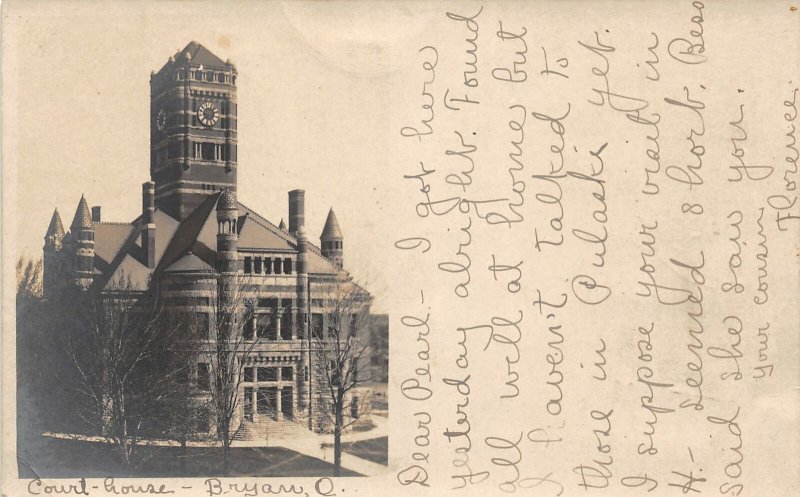 Dear Pearl - I got here
yesterday alright. Found
all well at home but
I haven't talked to
those in Pulaski yet.
I suppose your visit in
H. - seemed s hort. Bess
said she saw you.
your cousin,
Florence.
Court-house - Bryan, O.